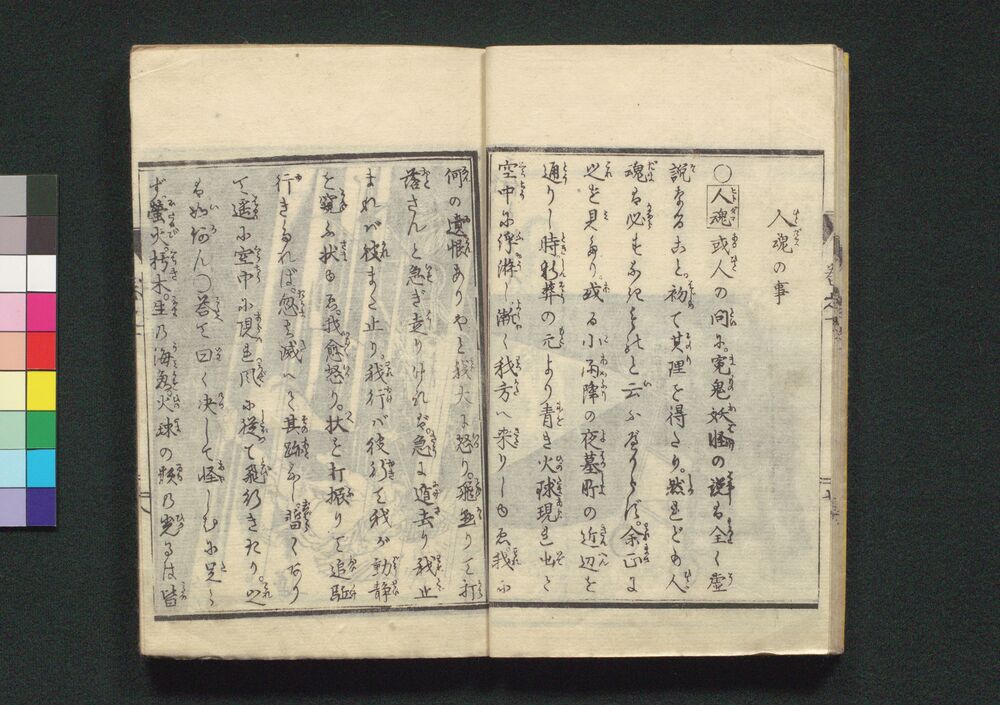 人魂の事
○人魂或人の問に。寃鬼妖怪の説は全く虚
説なること。初て其理を得たり。然れども人
魂は必もなきものと云ふべからず。余正に
之を見たり。或る小雨降の夜墓所の近辺を
通りし時新葬の元より青き火球現れ出て
空中に浮游し漸く我方へ来りしゆゑ我に
何の遺恨ありやと我大に怒り。飛起りて打
落さんと急ぎ走りければ。急に遁去り我止
まれば彼また止り。我行ば彼行て我が動静
を窺ふ状ゆゑ。我愈怒り。杖を打振りて追駈
行きければ。忽ち滅へて其跡なし。暫くあり
て遥に空中に現れ風に従て飛行きたり。之
は如何ん○答て曰く決して怪しむに足ら
ず。螢火。朽木。生の海魚。火球の類の光るは皆